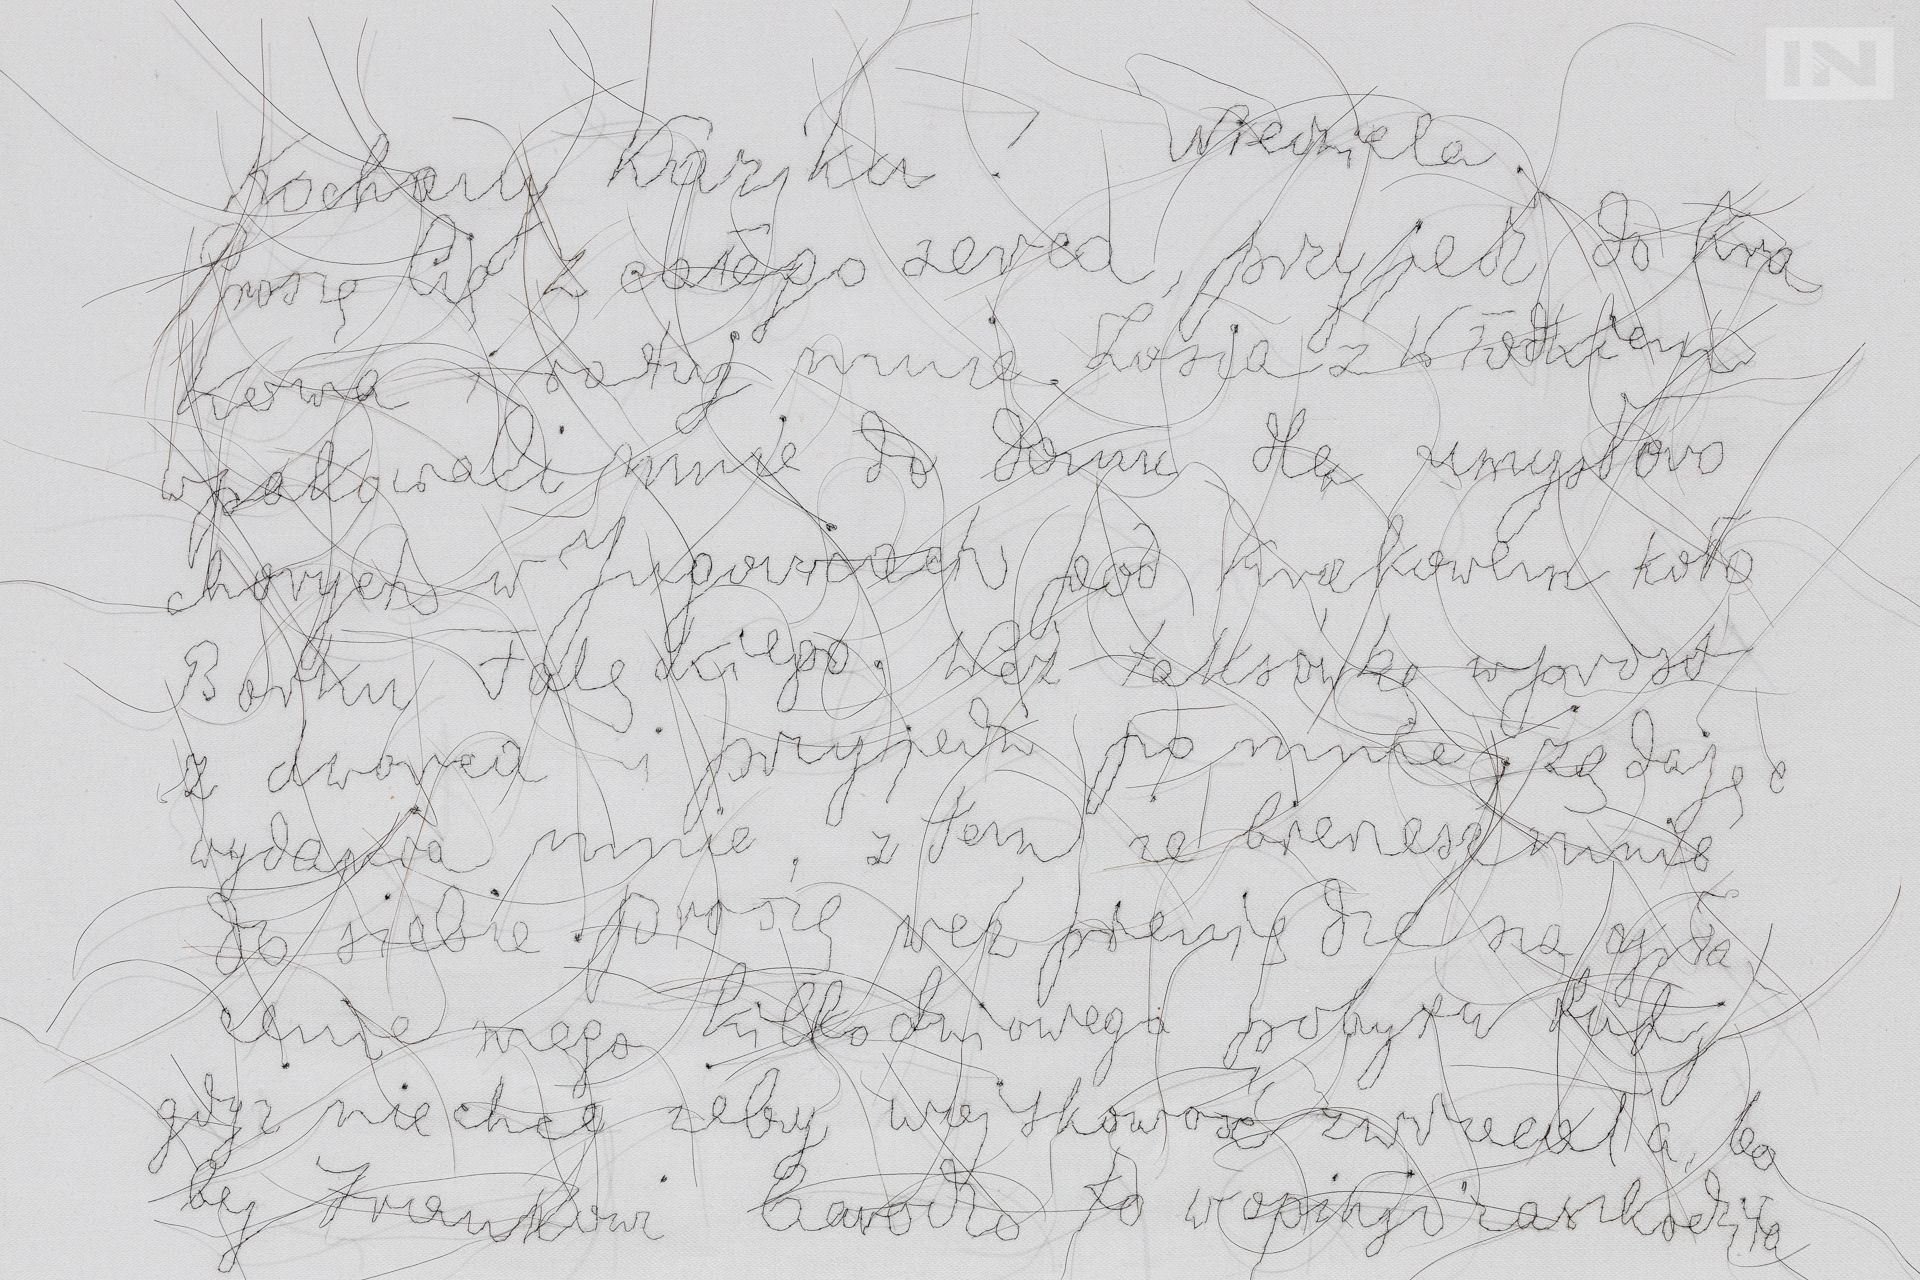 IN
Kochany Kaziku! niedziela
Proszę Cię z całego serca, przyjedź do Kra
kowa, ratuj mnie Zosia z Włodkiem
wpakowali mnie do domu dla umysłowo
chorych w Jugowicach pod Krakowem koło
Borku Falęckiego. Weź taksówkę wprost
z dworca i przyjedź po mnie, żądając
wydania mnie, z tem że bierzesz mnie
do siebie proszę weź pieniądze na opła
cenie mego kilkodniowego pobytu tutaj
gdyż nie chcę żeby wojskowość zwracała, bo
by Frankowi bardzo to w opinji zaszkodziło